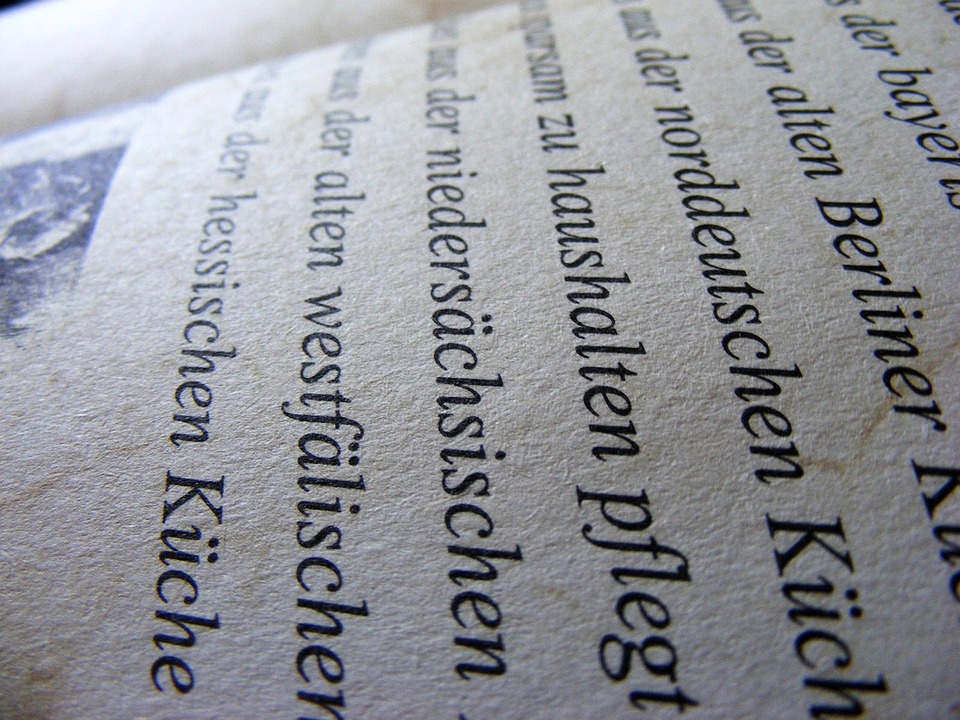 der bayeris
aus der alten Berliner Küc
aus der norddeutschen Küch
zu haushalten pflegt
aus der niedersächsischen
aus der alten westfälischen
aus der hessischen Küche